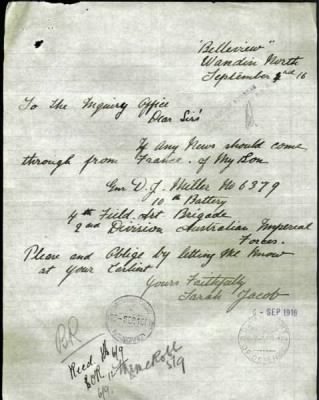 "Belleview"
Wandin North
September 3rd 16
To the Inquiry Office
Dear Sirs
If Any News should come
through from France. of My Son
Gnr D. J. Miller No 6379
10th Battery
4th Field. Art Brigade
2nd Division Australian Imperial
Forces.
Please and Oblige by letting Me Know
at Your Earliest
Yours Faithfully
Sarah Jacob
SEP 1916
BR
Recd 6/9
BOR
6/9
5/9